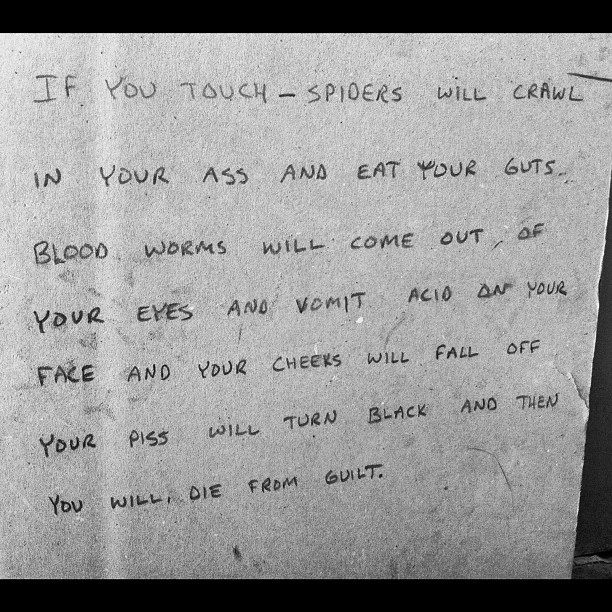 IF YOU TOUCH — SPIDERS WILL CRAWL
IN YOUR ASS AND EAT YOUR GUTS.
BLOOD WORMS WILL COME OUT OF
YOUR EYES AND VOMIT ACID ON YOUR
FACE AND YOUR CHEEKS WILL FALL OFF
YOUR PISS WILL TURN BLACK AND THEN
YOU WILL, DIE FROM GUILT.